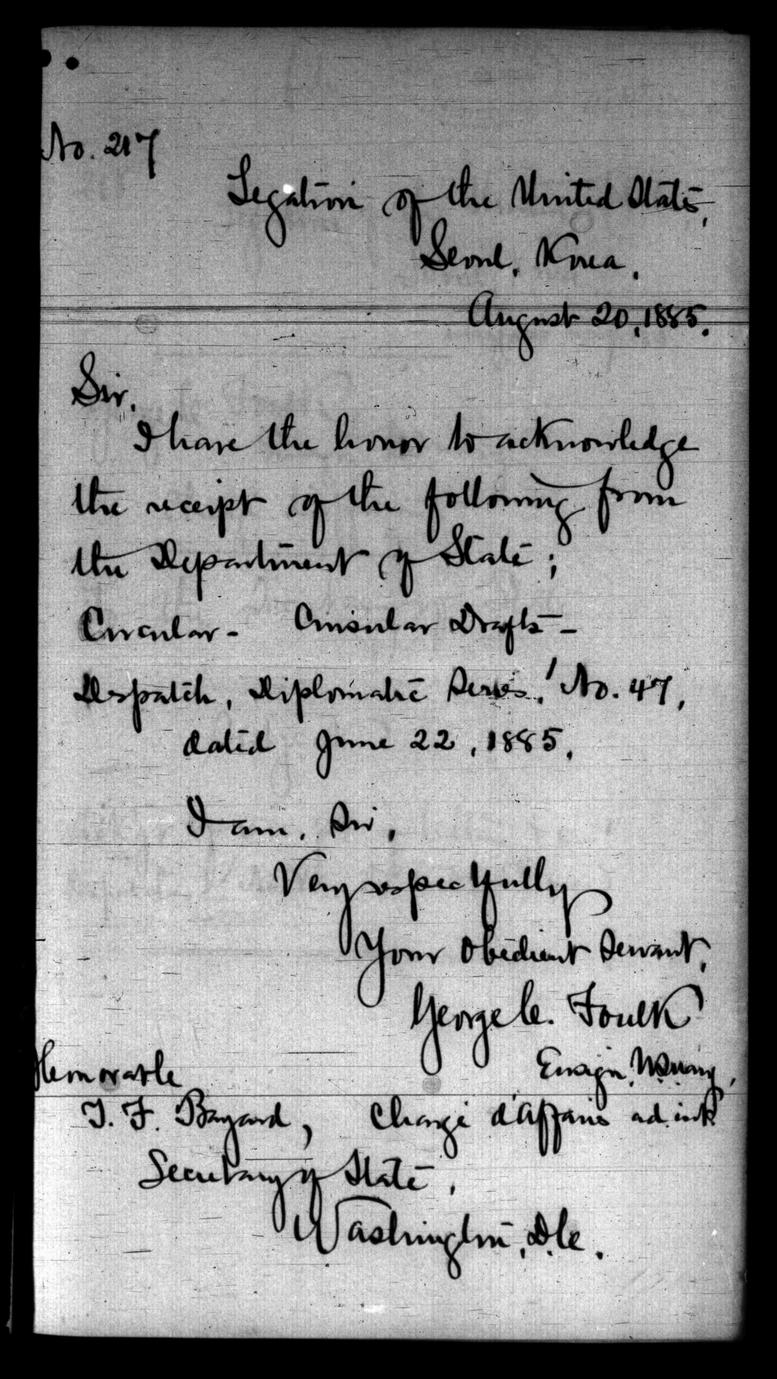 No. 217
Legation of the United States,
Seoul, Korea,
August 20, 1885.
Sir,
I have the honor to acknowledge
the receipt of the following from
the Department of State;
Circular - Consular Drafts -
Despatch, Diplomatic Series, No. 47,
dated June 22, 1885.
I am, Sir,
Very respectfully
Your Obedient Servant,
George C. Foulk
Honorable Ensign, U.S. Navy,
T. F. Bayard, Chargé d'Affaires ad. int
Secretary of State,
Washington, D.C.